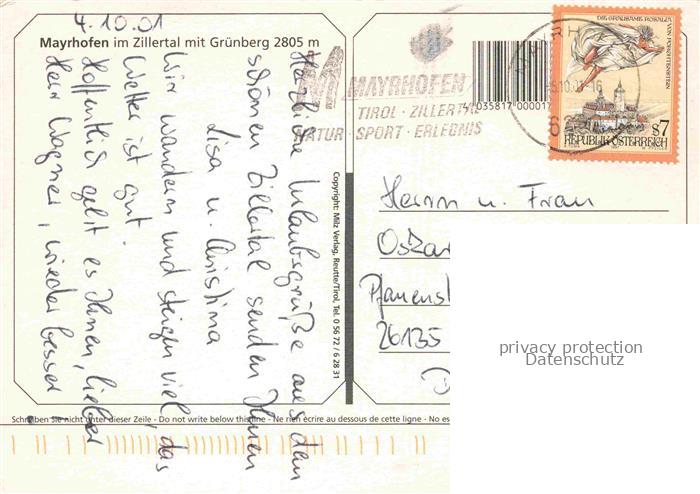 4.10.01
Mayrhofen im Zillertal mit Grünberg 2805 m
Herzliche Urlaubsgrüße aus dem
schönen Zillertal senden Ihnen
Lisa u. Christina
Wir wandern und steigen viel, das
Wetter ist gut.
Hoffentlich geht es Ihnen, lieber
Herr Wagner, wieder besser
MAYRHOFEN
TIROL · ZILLERTAL
NATUR · SPORT · ERLEBNIS
035817 00001
DIE GRAUSAME ROSALIA
VON FORCHTENSTEIN
S7
REPUBLIK ÖSTERREICH
Copyright: Milz Verlag, Reutte/Tirol, Tel. 0 56 72 / 6 28 31
Herrn u. Frau
Oskar
Pfauenst
26135
privacy protection
Datenschutz
Schreiben Sie nicht unter dieser Zeile - Do not write below this line - Ne rien écrire au dessous de cette ligne - No es